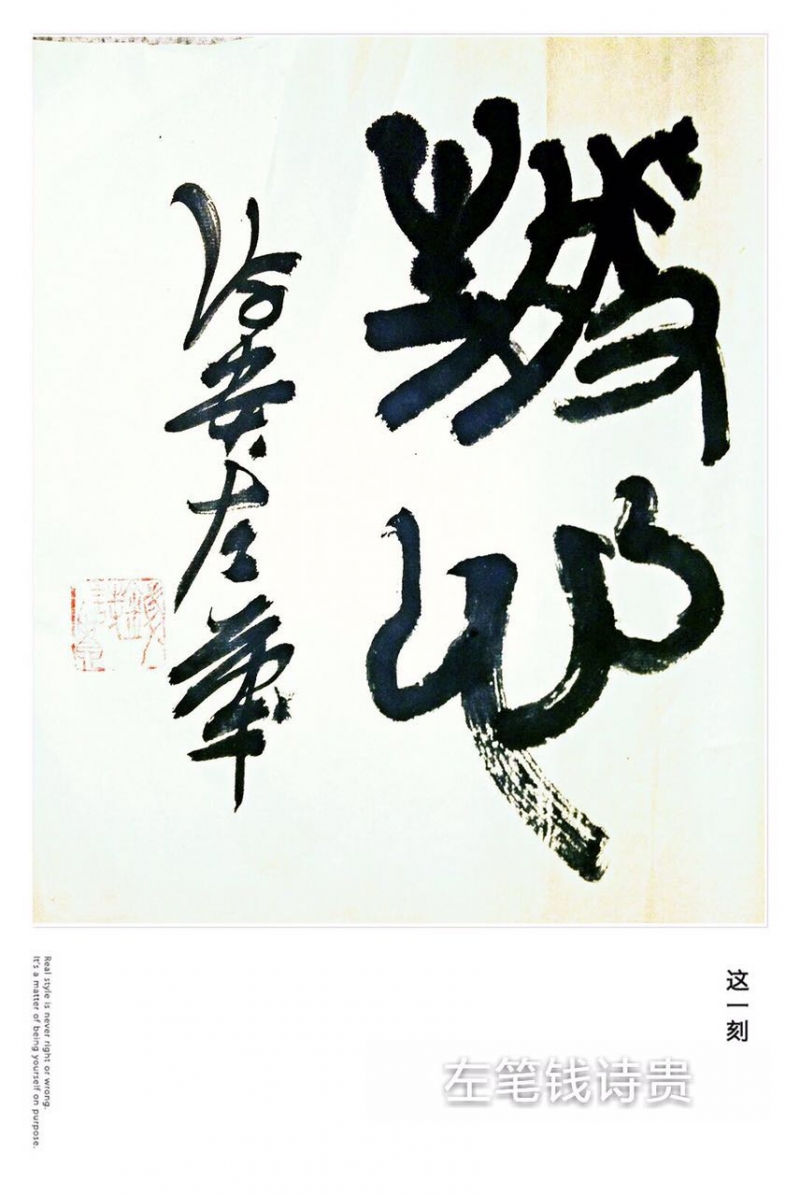 心
安左筆
这一刻
左笔钱诗贵
Real style is never right or wrong.
It's a matter of being yourself on purpose.